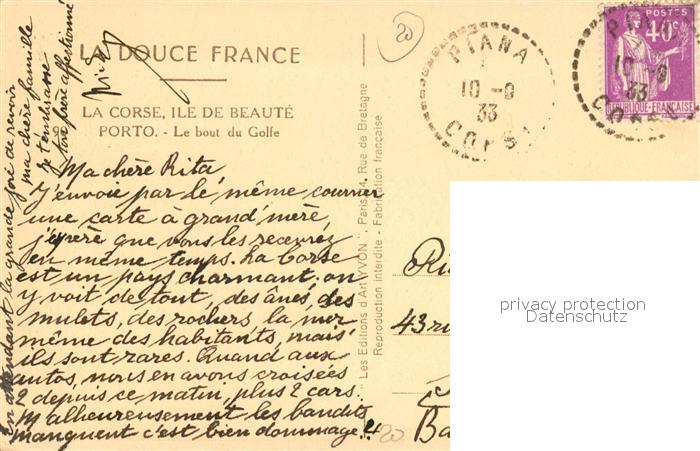 LA DOUCE FRANCE
LA CORSE, ILE DE BEAUTÉ
PORTO. - Le bout du Golfe
Ma chère Rita
J'envoie par le même courrier
une carte à grand'mère,
j'espère que vous les recevrez
en même temps. La Corse
est un pays charmant: on
y voit de tout, des ânes, des
mulets, des rochers la mer
même des habitants, mais
ils sont rares. Quand aux
autos, nous en avons croisées
2 depuis ce matin, plus 2 cars.
Malheureusement les bandits
manquent c'est bien dommage!!
en attendant la grande joie de revoir
ma chère famille
je t'embrasse
ton frère affectionné
"Les Editions d'Art YVON", Paris, 4, Rue de Bretagne
Reproduction interdite - Fabrication française
20
PIANA
10 - 9
33
CORSE
POSTES
40c
RÉPUBLIQUE FRANÇAISE
PIANA
10 - 9
33
CORSE
43
Ba
20
privacy protection
Datenschutz